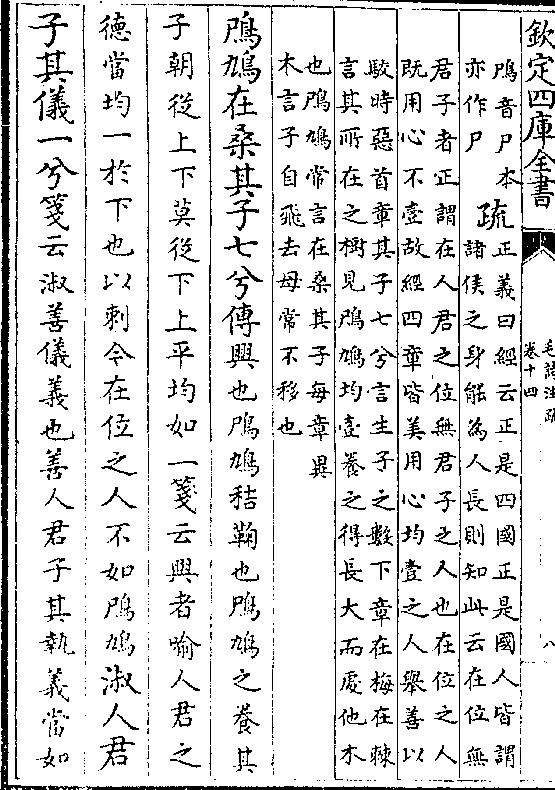 欽定四庫全書
毛詩注疏
卷十四
八
鳲音尸本
亦作尸
疏
正義曰經云正是四國正是國人皆謂
諸侯之身能為人長則知此云在位無
君子者正謂在人君之位無君子之人也在位之人
既用心不壹故經四章皆美用心均壹之人舉善以
駮時惡首章其子七兮言生子之數下章在梅在棘
言其所在之樹見鳲鳩均壹養之得長大而處他木
也鳲鳩常言在桑其子每章異
木言子自飛去母常不移也
鳲鳩在桑其子七兮傳興也鳲鳩秸鞠也鳲鳩之養其
子朝從上下莫從下上平均如一箋云興者喻人君之
德當均一於下也以刺今在位之人不如鳲鳩淑人君
子其儀一兮箋云淑善儀義也善人君子其執義當如